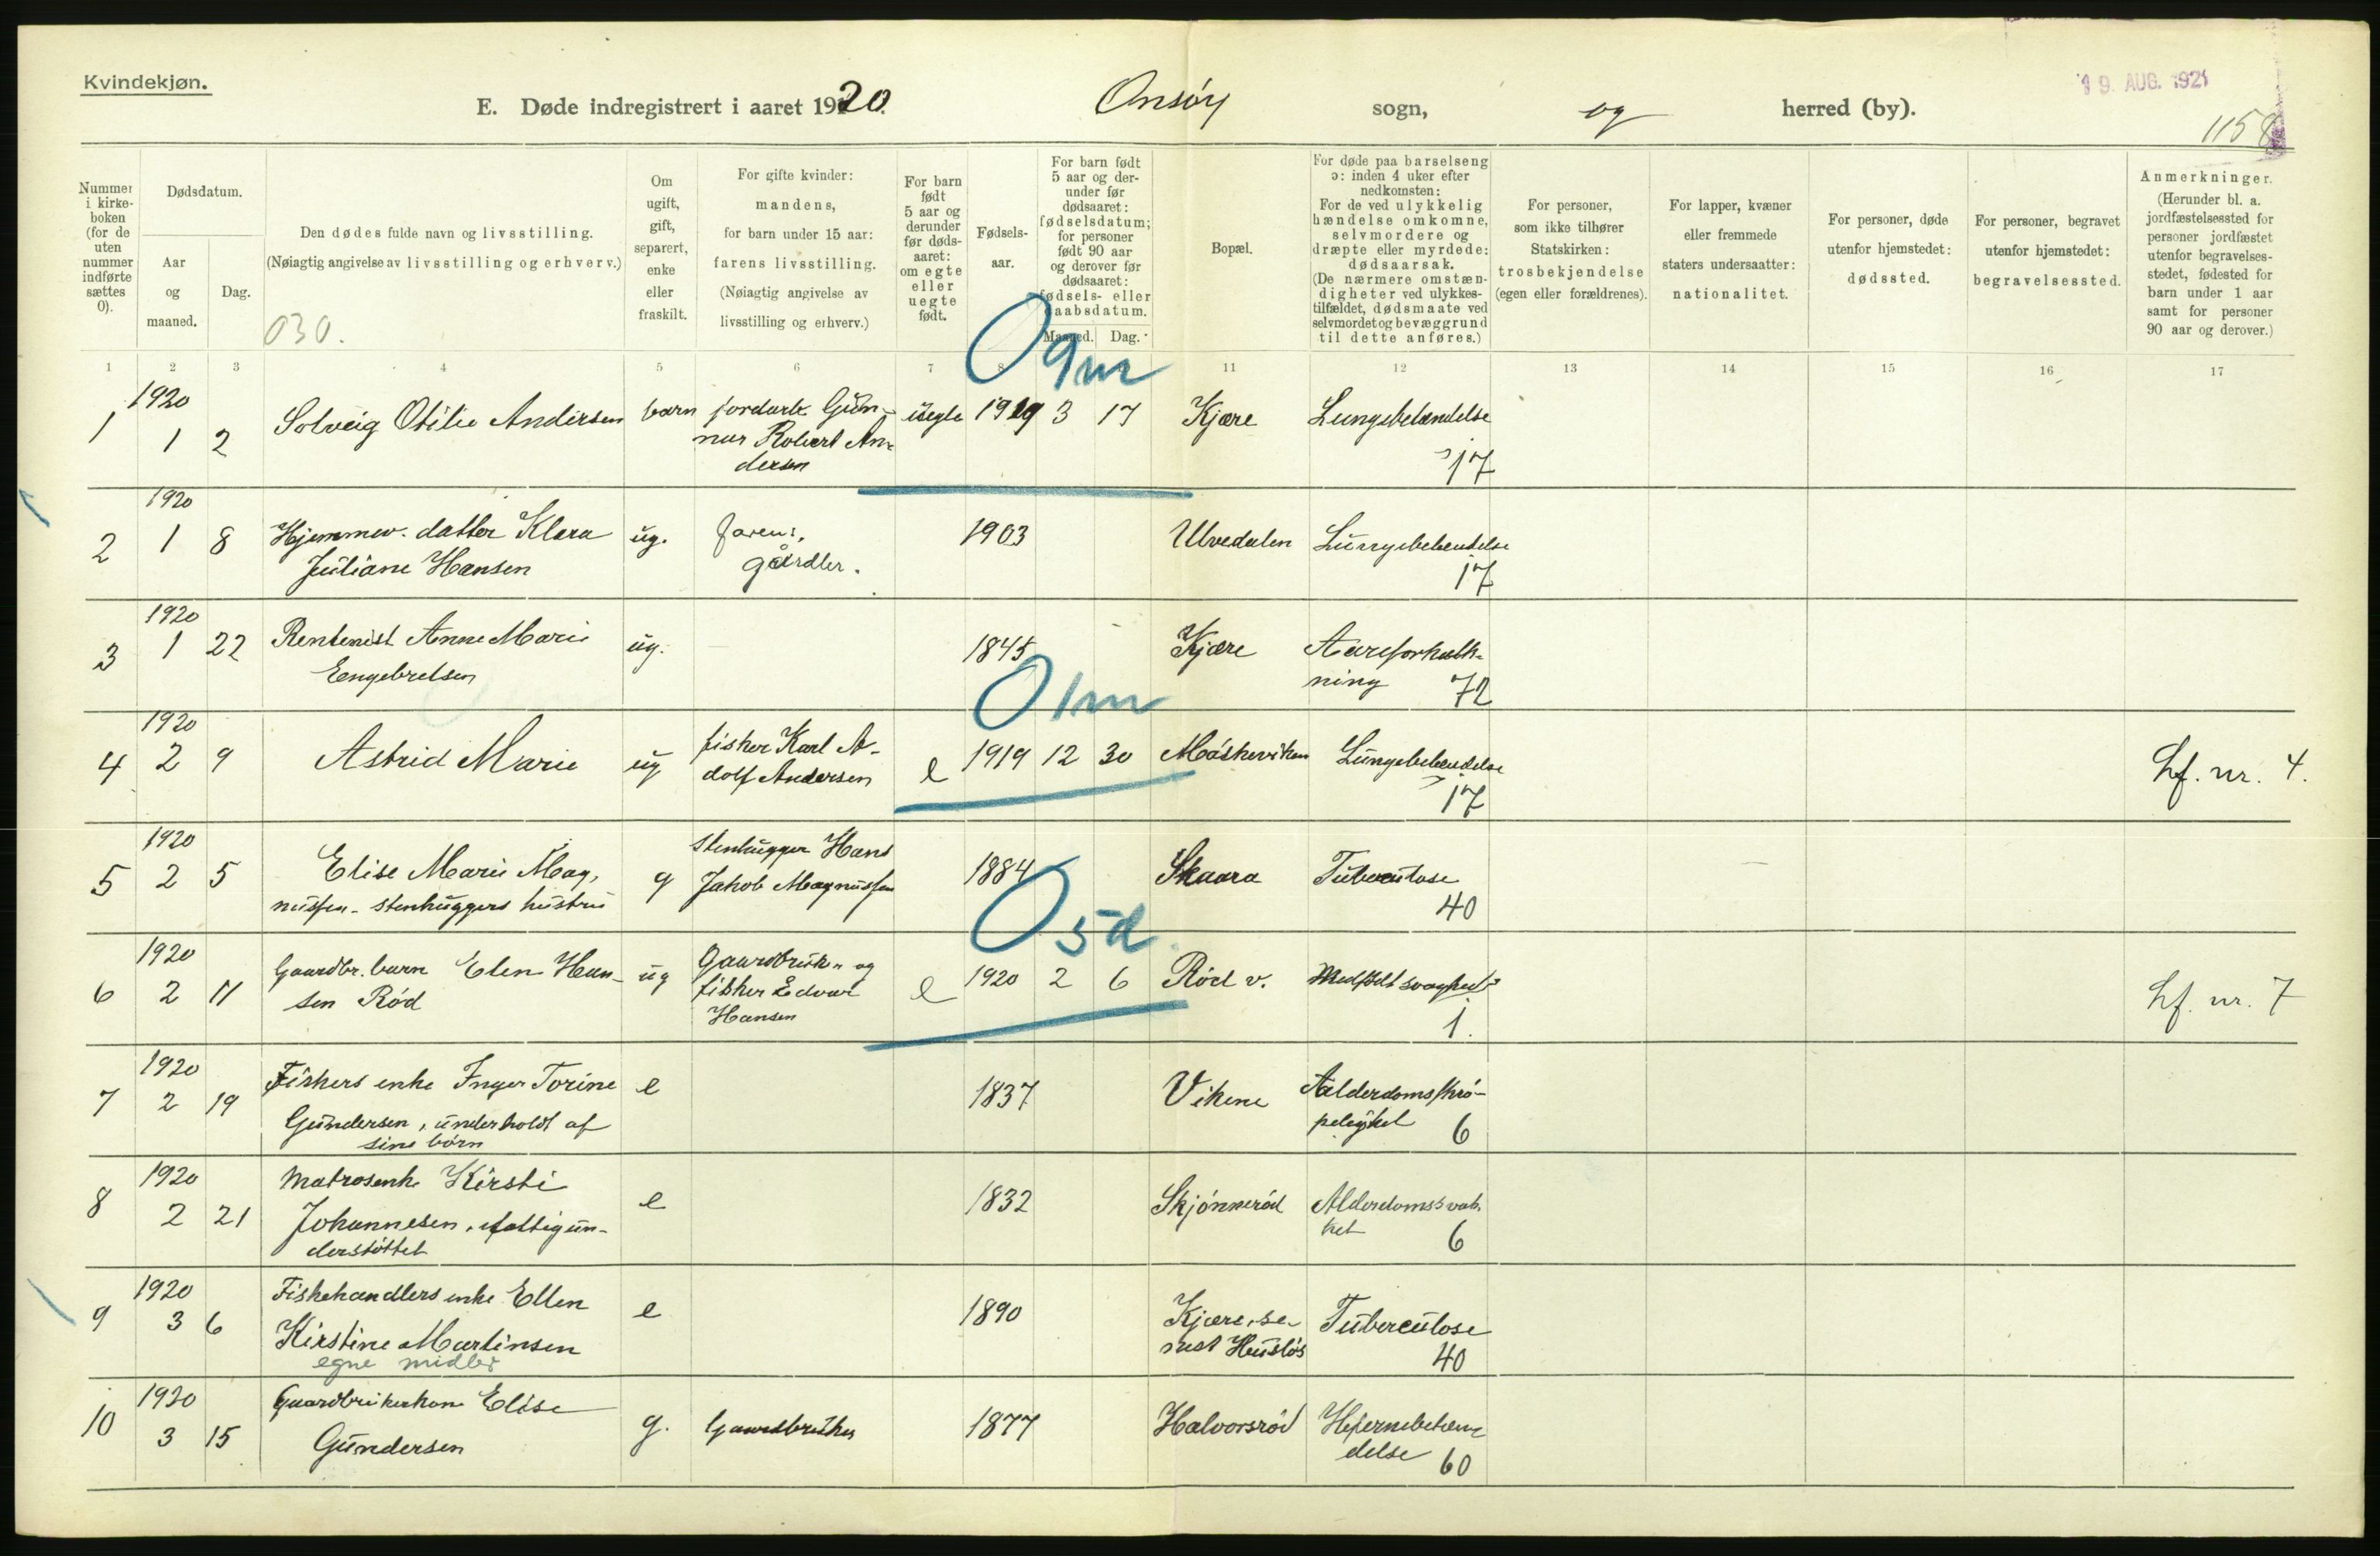 Kvindekjøn.
E. Døde indregistrert i aaret 1920. Onsøy sogn, og herred (by).
19. AUG. 1921
1158
Nummer i kirkeboken (for de uten nummer indførte sættes 0).
Dødsdatum.
Aar og maaned.
Dag.
Den dødes fulde navn og livsstilling.
(Nøiagtig angivelse av livsstilling og erhverv.)
030.
Om ugift, gift, separert, enke eller fraskilt.
For gifte kvinder: mandens, for barn under 15 aar: farens livsstilling.
(Nøiagtig angivelse av livsstilling og erhverv.)
For barn født 5 aar og derunder før dødsaaret: om egte eller uegte født.
Fødselsaar.
For barn født 5 aar og derunder før dødsaaret: fødselsdatum; for personer født 90 aar og derover før dødsaaret: fødsels- eller daabsdatum.
Maaned. Dag.
Bopæl.
For døde paa barselseng ɔ: inden 4 uker efter nedkomsten: For de ved ulykkelig hændelse omkomne, selvmordere og dræpte eller myrdede: dødsaarsak.
(De nærmere omstændigheter ved ulykkestilfældet, dødsmaate ved selvmordet og bevæggrund til dette anføres.)
For personer, som ikke tilhører Statskirken: trosbekjendelse (egen eller forældrenes).
For lapper, kvæner eller fremmede staters undersaatter: nationalitet.
For personer, døde utenfor hjemstedet: dødssted.
For personer, begravet utenfor hjemstedet: begravelsessted.
Anmerkninger.
(Herunder bl. a. jordfæstelsessted for personer jordfæstet utenfor begravelsesstedet, fødested for barn under 1 aar samt for personer 90 aar og derover.)
1 2 3 4 5 6 7 8 11 12 13 14 15 16 17
0 9m
1 1920 1 2 Solveig Otilie Andersen barn jordarb. Gunnar Robert Andersen uegte 1919 3 17 Kjære Lungebetændelse 17
2 1920 1 8 Hjemmev. datter Klara Juliane Hansen ug. farens, gårdbr. 1903 Ulvedalen Lungebetendelse 17
3 1920 1 22 Rentenist Anne Marie Engebretsen ug. 1845 Kjære Aareforkalkning 72
0 1m
4 1920 2 9 Astrid Marie ug fisker Karl Adolf Andersen e 1919 12 30 Måskeviken Lungebetendelse 17 Lf. nr. 4.
5 1920 2 5 Elise Marie Magnussen - stenhuggers hustru g Stenhugger Hans Jakob Magnussen 1884 Skaara Tuberculose 40
0 5d.
6 1920 2 11 Gaardbr. barn Elen Hansen Rød ug Gaardbruk.- og fisker Edvar Hansen e 1920 2 6 Rød v. Medfødt svaghet 1. Lf. nr. 7
7 1920 2 19 Fiskers enke Inger Torine Gundersen, underholdt af sine børn e 1837 Vikene Alderdomsskrøpelighet 6
8 1920 2 21 Matrosenke Kirsti Johannesen, fattigunderstøttet e 1832 Skjønnerød Alderdomssvakhet 6
9 1920 3 6 Fiskehandlers enke Ellen Kirstine Martinsen egne midler e 1890 Kjære, senest Husløs Tuberculose 40
10 1920 3 15 Gaardbrukerkone Elise Gundersen g. Gaardbruker 1877 Halvorsrød Hjernebetændelse 60